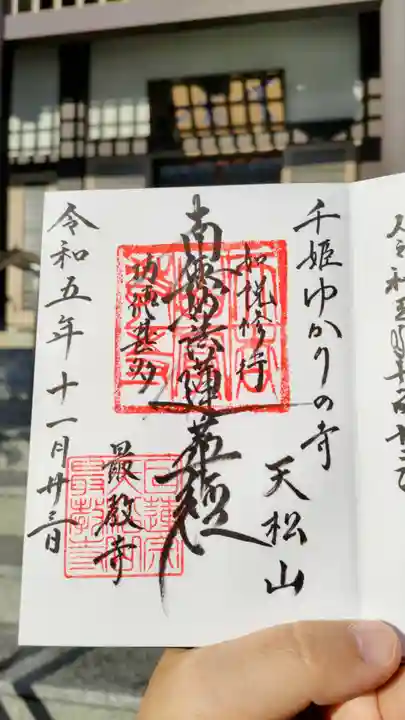 千姫ゆかりの寺
天松山
如説修行
南無妙法蓮華経
功徳甚多
最教寺
令和五年十一月廿三日